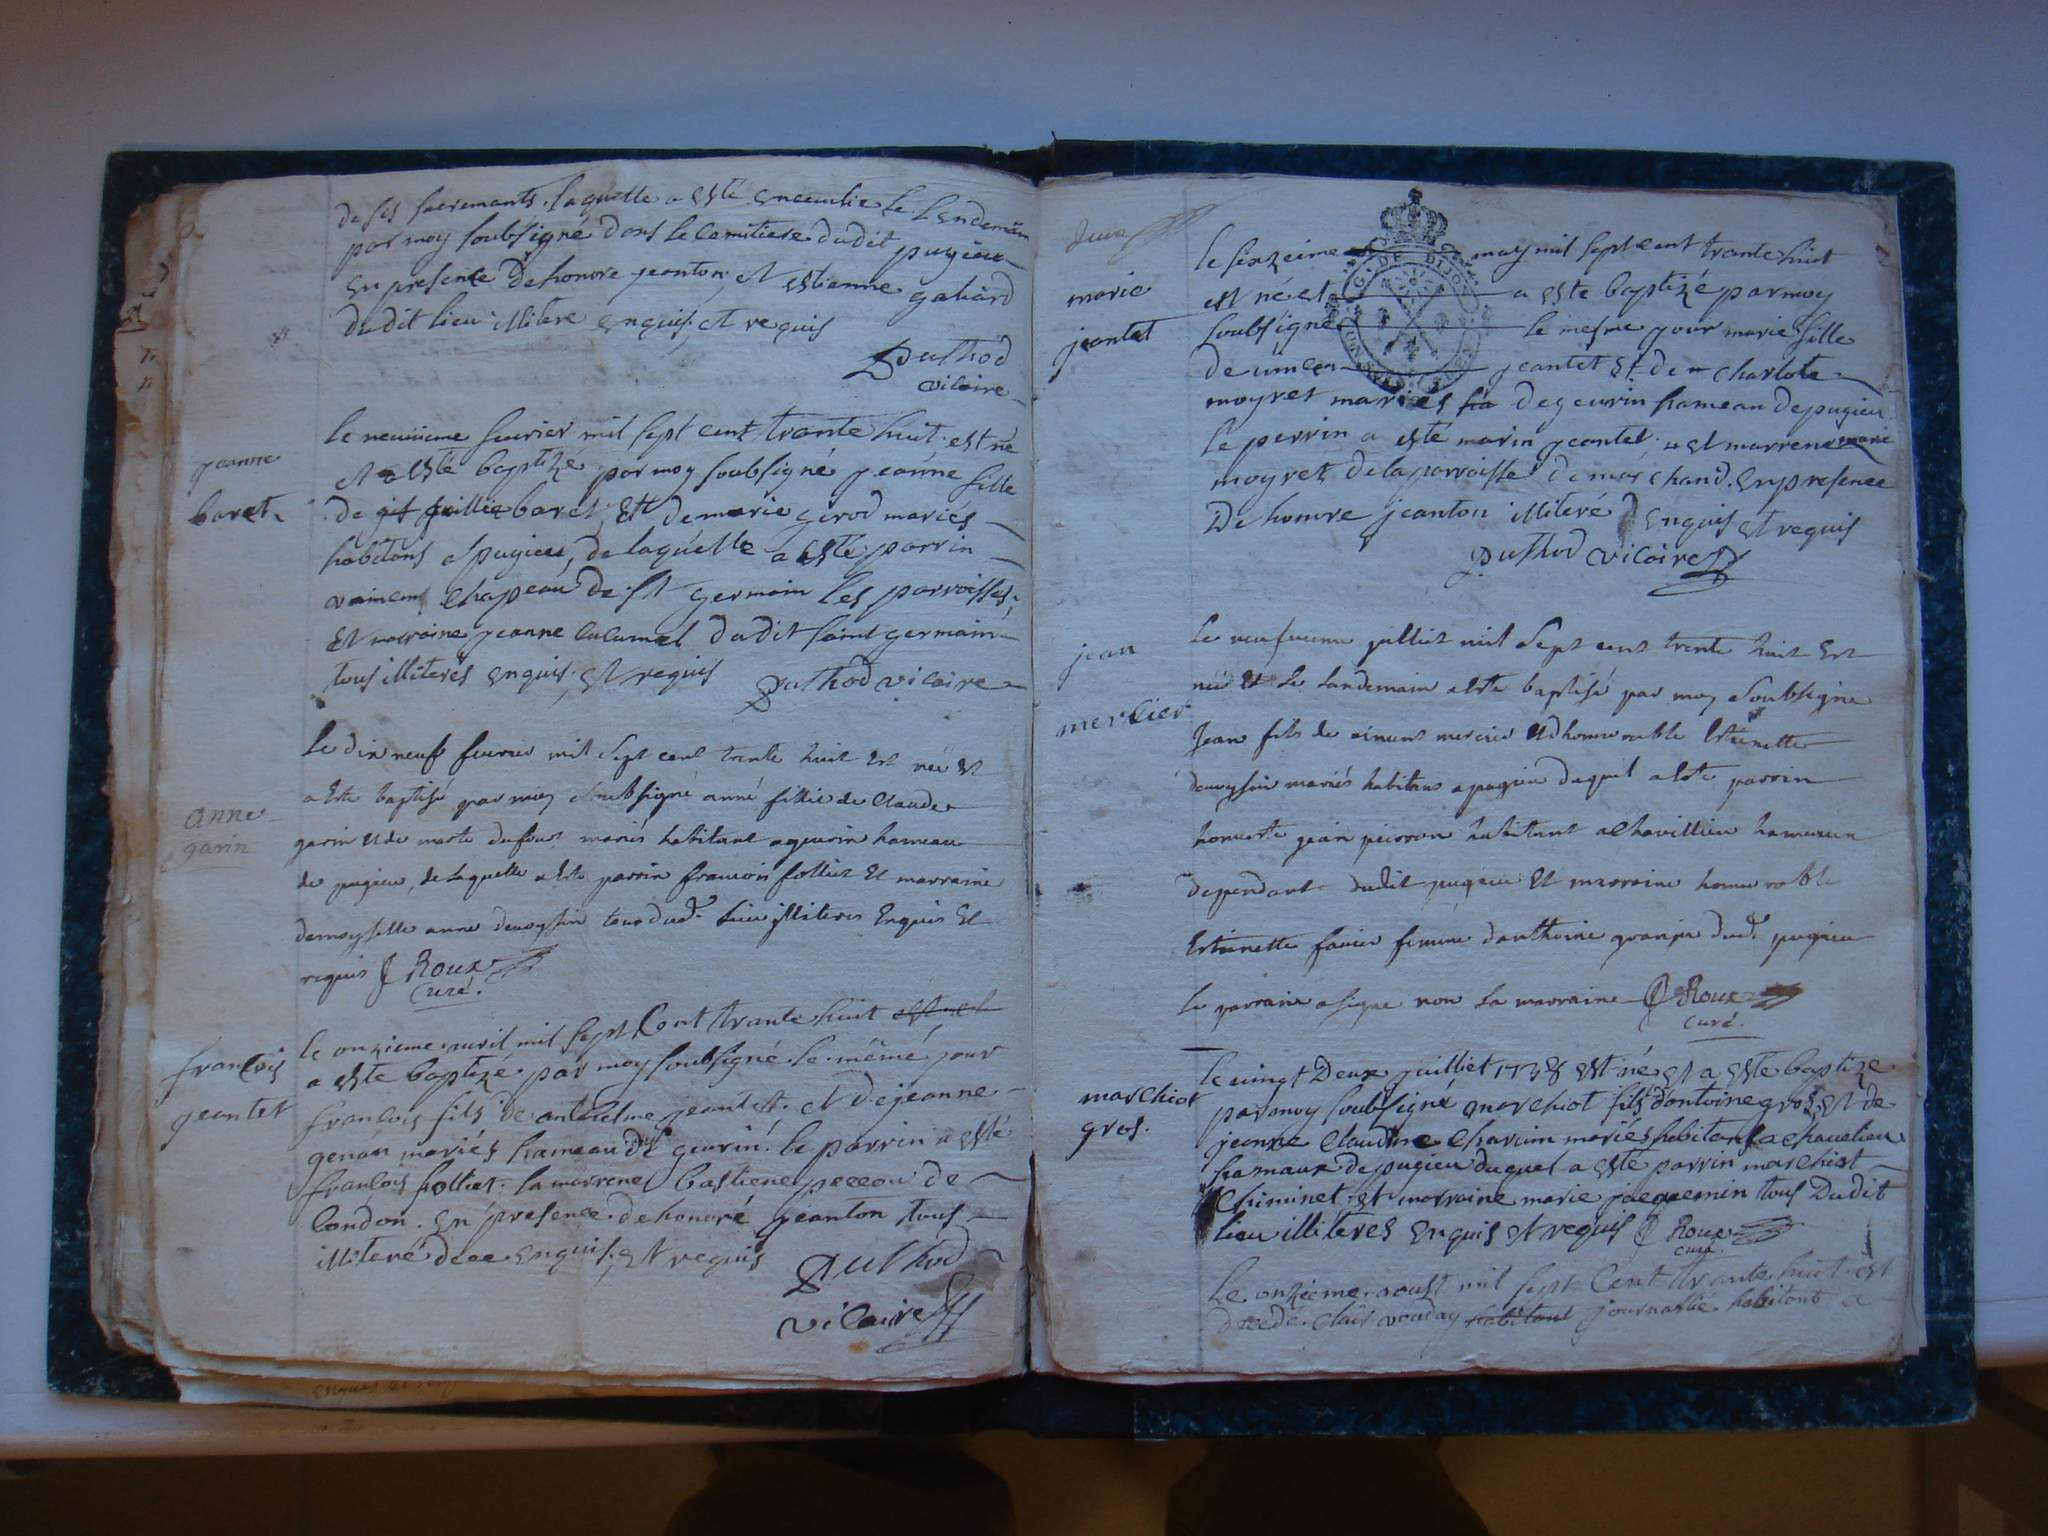 de ses sacremants. laquelle a este encevelie le lendemain
par moy soubsigné dans le cemitiere dudit pugieu
en presence de honore jeanton et estienne galiard
dudit lieu illitere enquis. et requis
Puthod
vicaire
jeanne
baret
le neuvieme fevrier mil sept cent trante huit. est né
et a esté baptizé par moy soubsigné jeanne fille
de baret et de marie girod mariés
habitans a pugieu, de laquelle a este parrin
chapeau de st germain les parroisses,
et marraine jeanne dudit saint germain
tous illiterés enquis. et requis Puthod vicaire
anne
garin
Le dix neuf fevrier mil sept cent trente huit est née et
a este baptisé par moy soubsigné anne fillie de Claude
garin et de marte dufour mariés habitant a geurin hameau
de pugieu, de laquelle a este parrin francois folliet et marraine
demoyselle anne devoyssin tous dud. lieu illiteres enquis et
requis J Roux
curé.
francois
jeantet
le onzieme. avril mil sept Cent trante huit est né et
a este baptizé par moy soubsigné. le même jour
francois fils de antelme jeantet. et de jeanne
genan mariés hameau de geurin. le parrin a esté
francois folliet. la marrene bastiene de
Condon. en presence. de honoré jeanton tous
illiteré de ce enquis. et requis
Puthod
vicaire
deux
le seizeime may mil sept cent trante huit
marie
est né et a este baptizé par moy
jeantet
soubsigné le mesme jour marie fille
de vincen jeantet et de charlote
moyret mariés de geurin hameau de pugieu
le perrin a esté marin jeantet et marrene marie
moyret de la parroisse de marchand. en presence
de honore jeanton illiteré enquis et requis
Puthod vicaire
jean
mercier
Le neufvieme julliet mil sept cent trente huit est
née et le landemain a este baptisé par moy soubsigné
Jean fils de aimant mercier et d honnorable Estienette
devoyssin mariés habitans a pugieu duquel a este parrin
honneste jean peisson habitant a chavillieu hameau
dependant dudit pugieu et marraine honnorable
Estienette favier femme d anthoine grange dud. pugieu
le parrain a signe non la marraine J Roux
curé.
marchiot
gros.
le vingt deux juilliet 1738 est né et a este baptize
par moy soubsigné marchiot fils d antoine gros et de
jeanne Claudine charvin mariés habitant a chavelieu
hamaux de pugieu duquel a este parrin marchiot
Chiminet. et marraine marie jacquemin tous dudit
lieu illiteres enquis et requis J Roux
curé.
Le onzieme. aoust mil sept Cent trante. huit. est
decedé. clair vouday habitant journallié habitant a